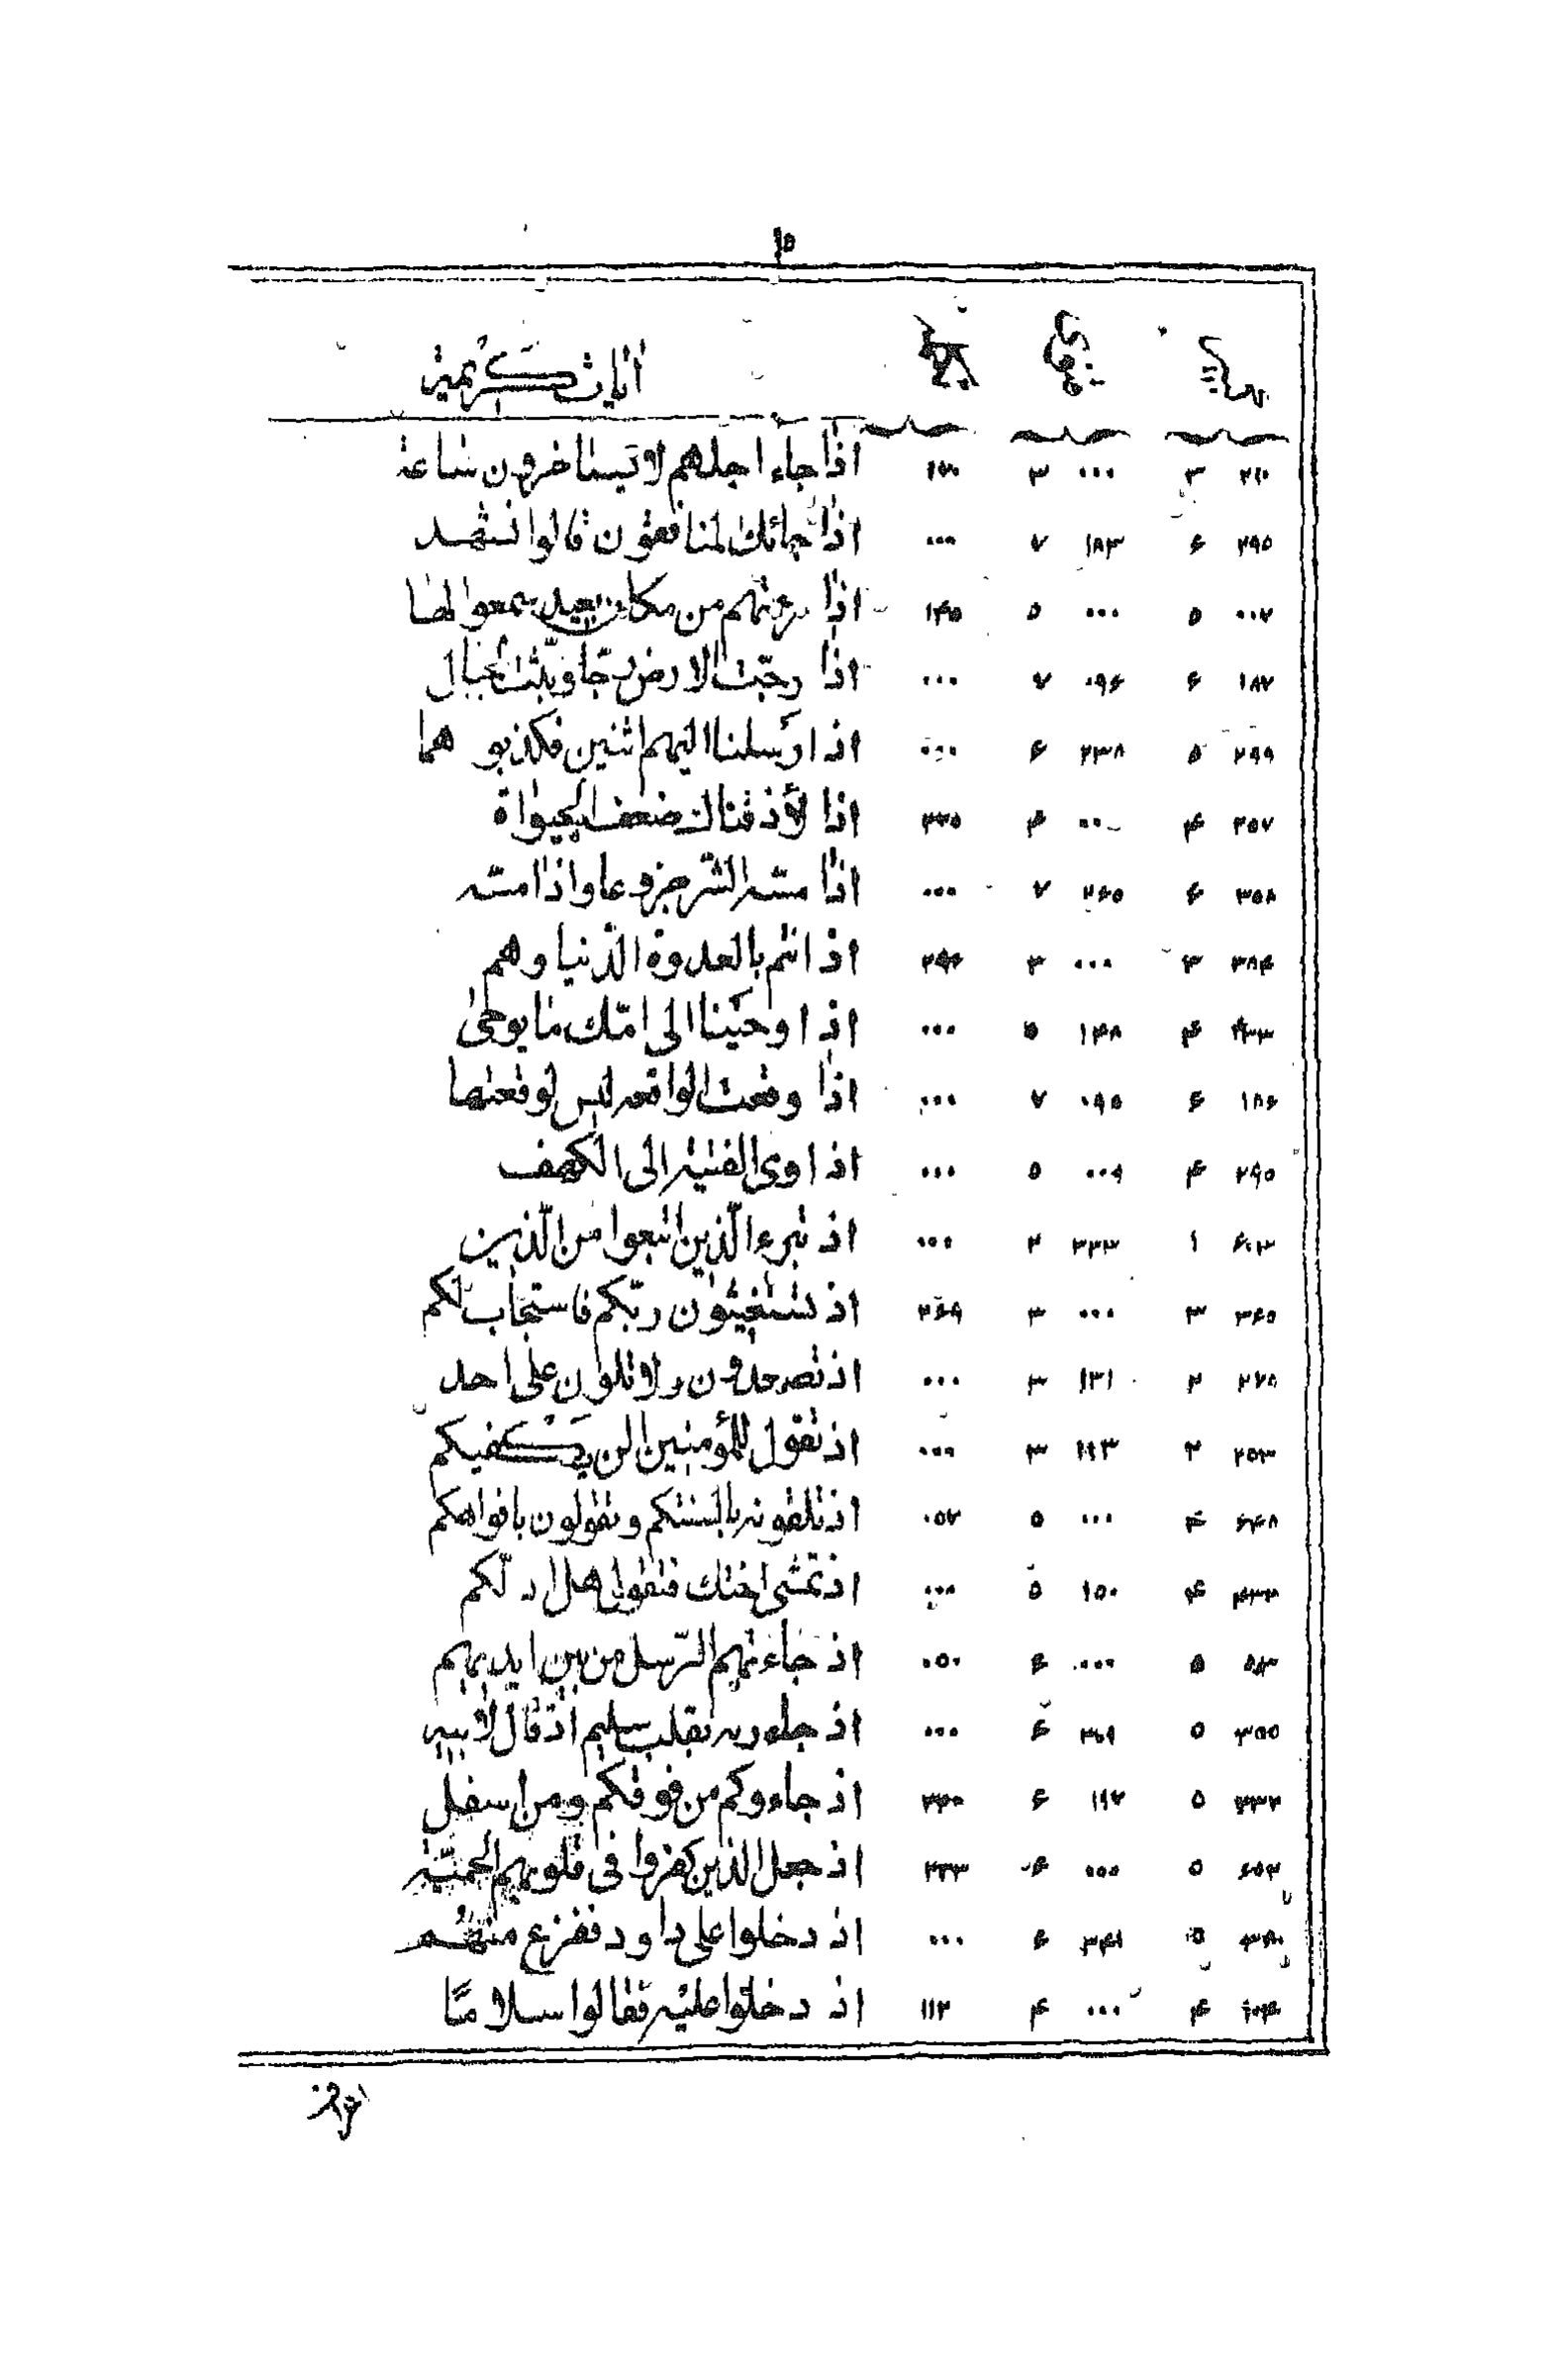 ١٥
اٰيات كريمه
٢١٠ ٣ ٠٠٠ ٣ اذا جاء اجلهم لا يستاخرون ساعة
٢٩٥ ۶ ١٨٣ ٧ ٠٠٠ اذا جائك المنافقون قالوا نشهد
٠٠٧ ٥ ٠٠٠ ٥ ١۴٥ اذا رءتهم من مكان بعيد سمعوا لها
١٨٧ ۶ ٠٩۶ ٧ ٠٠٠ اذا رجّت الارض رجّا وبسّت الجبال
٢٩٩ ٥ ٢٣٨ ۶ ٠٠٠ اذ ارسلنا اليهم اثنين فكذبو هما
٢٥٧ ۴ ٠٠٠ ۴ اذا لأذقناك ضعف الحيواة
٣٥٨ ۶ ٢۶٥ ٧ ٠٠٠ اذا مسّه الشّر جزوعا واذا مسّه
٣٨۴ ٣ ٠٠٠ ٣ اذ انتم بالعدوة الدّنيا وهم
۴ ١۴٨ ٥ ٠٠٠ اذ اوحينا الى امّك ما يوحىٰ
١٨۶ ۶ ٠٩٥ ٧ ٠٠٠ اذا وقعت الواقعه ليس لوقعتها
٢٩٥ ۴ ٠٠٩ ٥ ٠٠٠ اذ اوى الفتيه الى الكهف
١ ٣٣٣ ٢ ٠٠٠ اذ تبرء الّذين اتبعوا من الّذين
٣۶٥ ٣ ٠٠٠ ٣ ٢۶٩ اذ تستغيثون ربّكم فاستجاب لكم
٢٧٨ ٢ ١٣١ ٣ ٠٠٠ اذ تصعدون ولا تلون على احد
٢٥٣ ٢ ١١٣ ٣ ٠٠٠ اذ تقول للمؤمنين الن يكفيكم
۶۴٨ ۴ ٠٠٠ ٥ ٠٥٧ اذ تلقونه بالسنتكم وتقولون بافواهكم
۴ ١٥٠ ٥ ٠٠٠ اذ تمشى اختك فتقول هل ادلّكم
٥ ٠٠٠ ۶ ٠٥٠ اذ جاءتهم الرّسل من بين ايديهم
٣٥٥ ٥ ٣٠٩ ۶ ٠٠٠ اذ جاء ربه بقلب سليم اذ قال لابيه
٥ ١٩٧ ۶ اذ جاءوكم من فوقكم ومن اسفل
۶٥٢ ٥ ٠٠٠ ۶ ٢٣٣ اذ جعل الذين كفروا فى قلوبهم الحميّة
٥ ٣۴١ ۶ ٠٠٠ اذ دخلوا على داود ففزع منهم
۴ ٠٠٠ ۴ ١١٢ اذ دخلوا عليه فقالوا سلاما